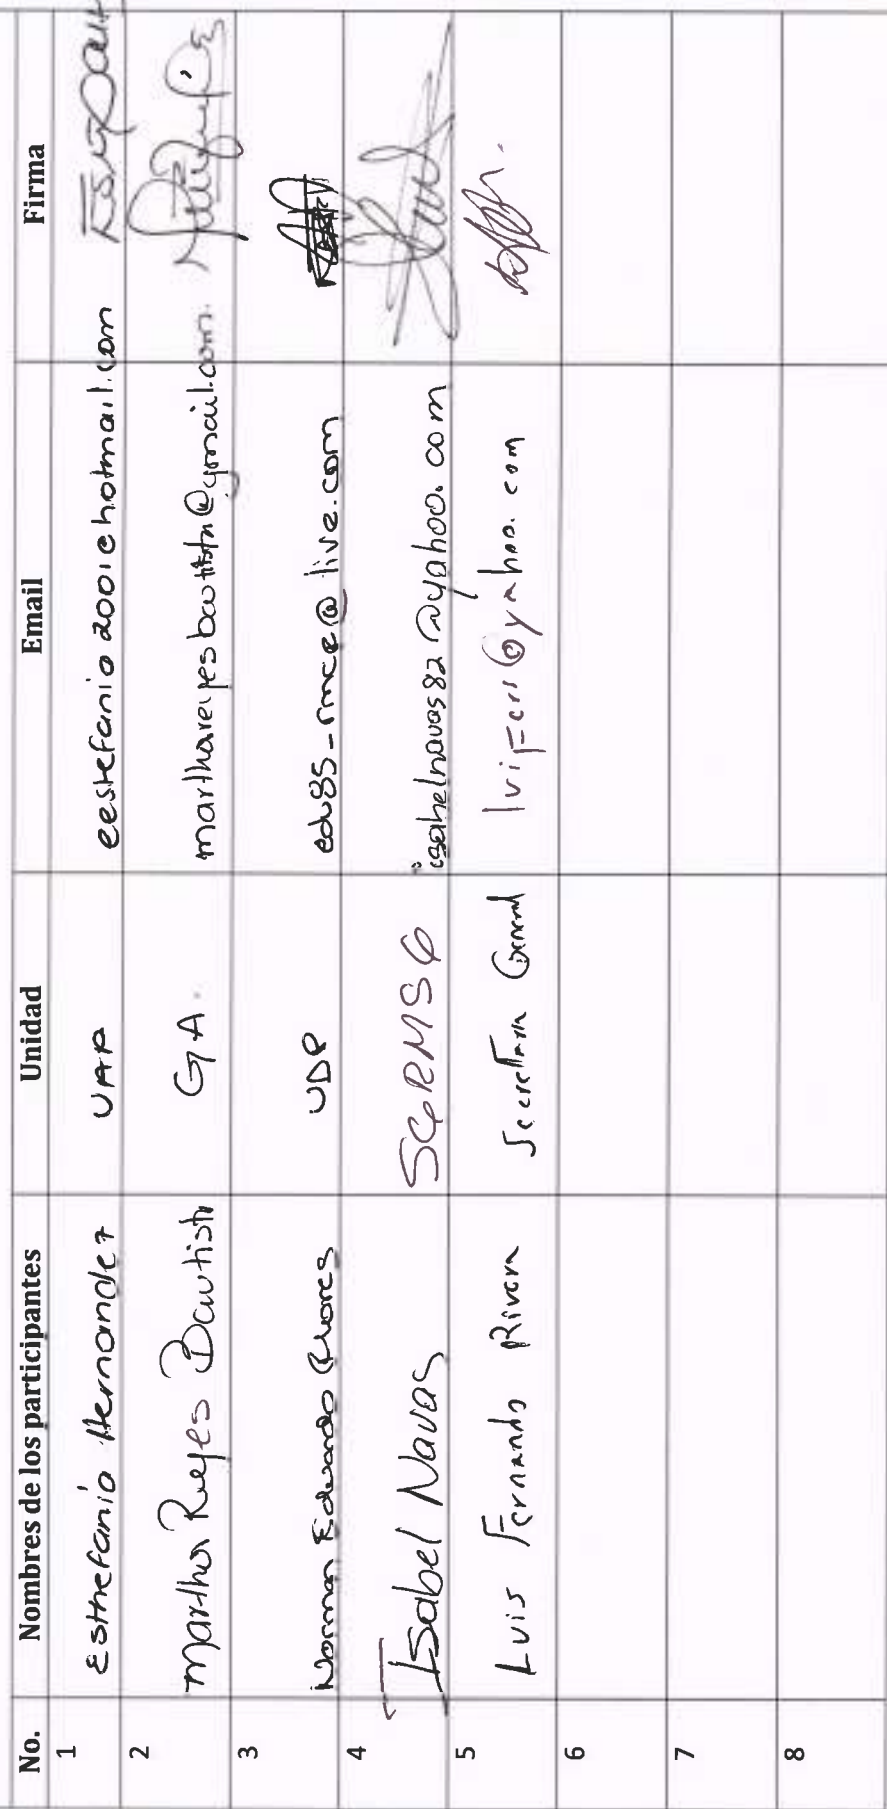 No. Nombres de los participantes Unidad Email Firma
1 Esthefania Hernandez UAP eestefania2001@hotmail.com
2 Martha Reyes Bautista G.A. marthareyesbautista@gmail.com
3 Norman Eduardo Flores UDP edu85_rmce@live.com
4 Isabel Navas SGRMSG isabelnavas82@yahoo.com
5 Luis Fernando Rivera Secretaria General @yahoo.com
6
7
8